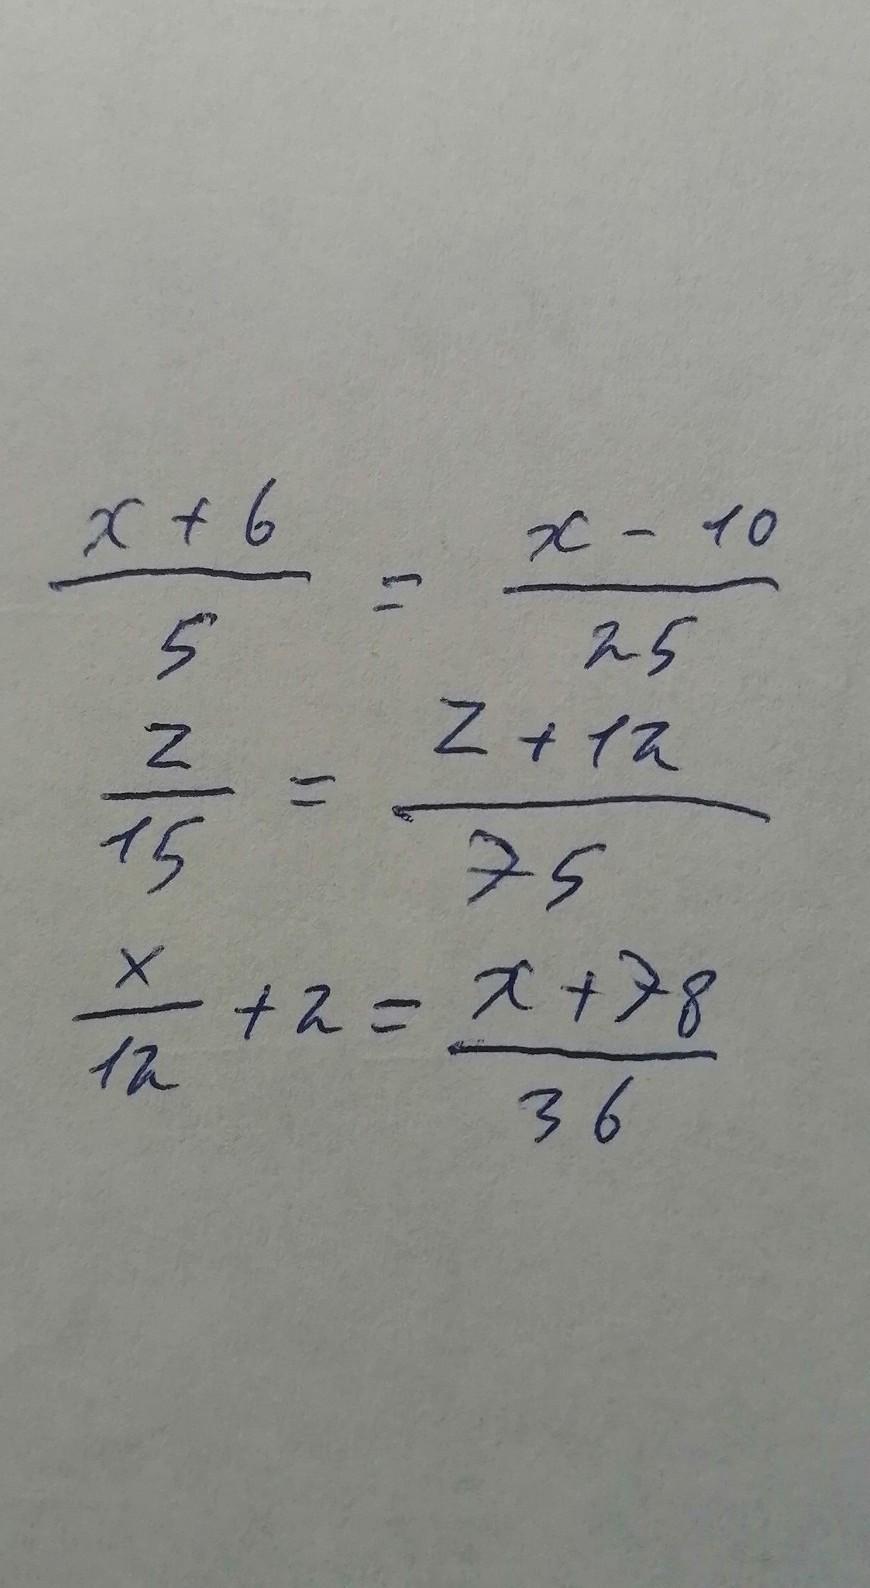 x + 6 / 5 = x - 10 / 25
z / 15 = z + 12 / 75
x / 12 + 2 = x + 78 / 36